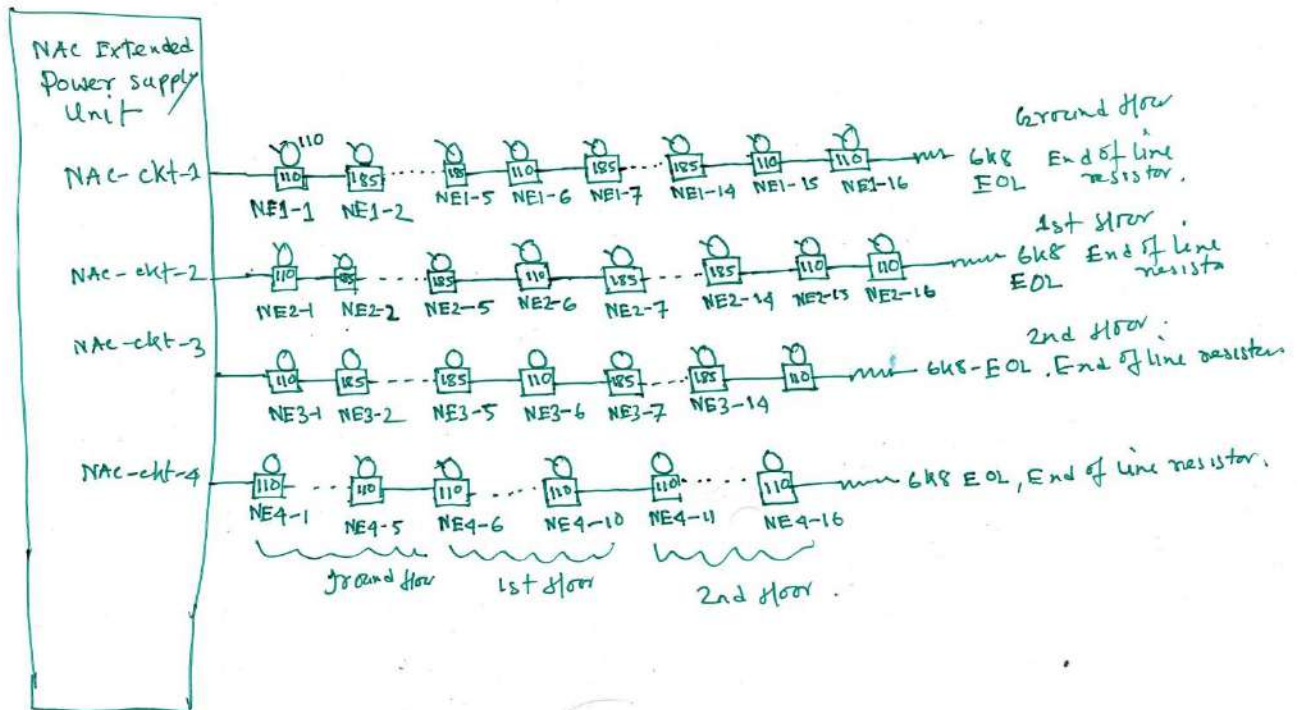 NAC Extended
Power supply
Unit
NAC-ckt-1
110
110 185 185 110 185 185 110 110
NE1-1 NE1-2 NE1-5 NE1-6 NE1-7 NE1-14 NE1-15 NE1-16
Ground floor
6k8 End of line
EOL resistor.
NAC-ckt-2
110 185 185 110 185 185 110 110
NE2-1 NE2-2 NE2-5 NE2-6 NE2-7 NE2-14 NE2-15 NE2-16
1st floor.
6k8 End of line
EOL resisto
NAC-ckt-3
110 185 185 110 185 185 110
NE3-1 NE3-2 NE3-5 NE3-6 NE3-7 NE3-14
2nd floor.
6k8-EOL, End of line resistor
NAC-ckt-4
110 110 110 110 110 110
NE4-1 NE4-5 NE4-6 NE4-10 NE4-11 NE4-16
6k8 EOL, End of line resistor.
ground floor 1st floor 2nd floor.